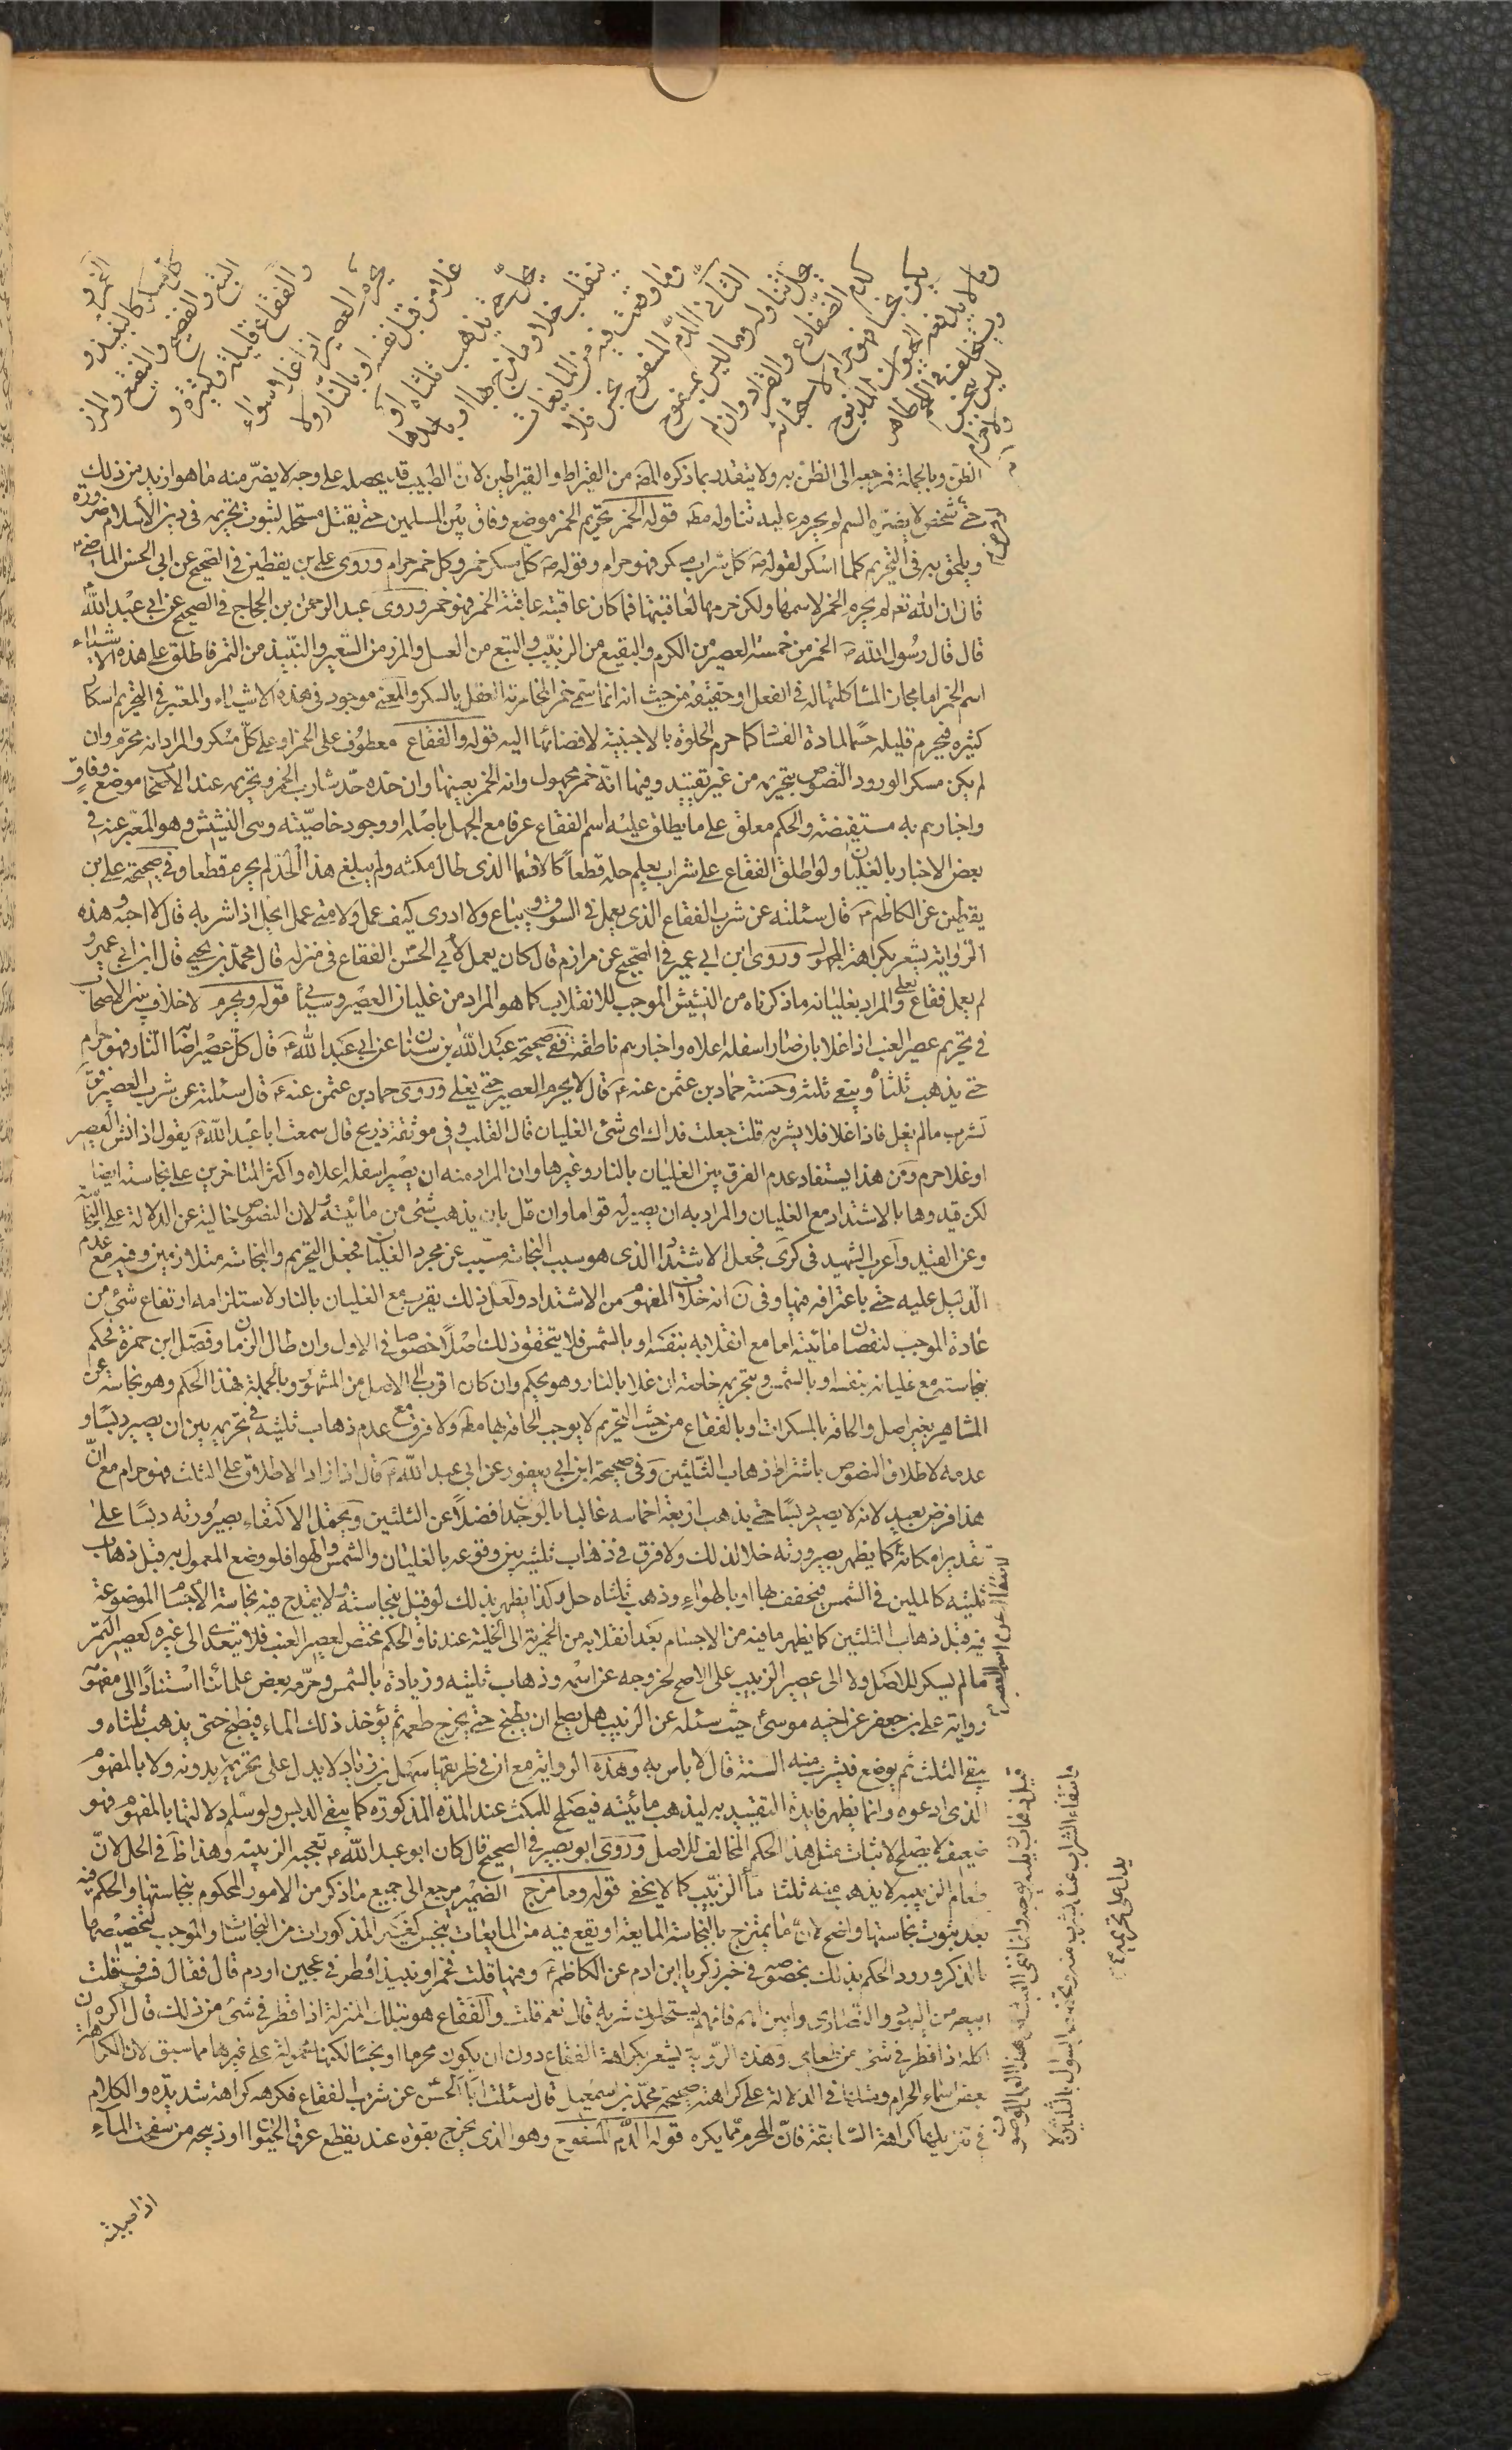 الخمر و
كل مسكر كالنبيذ و
البتع والفضيخ والنقيع والمزر
والفقاع قليله وكثيره و
يحرم العصير اذا غلا سواء
غلا من قبل نفسه او بالنار ولا
يحل حتى يذهب ثلثاه او
ينقلب خلا وما مزج بها او باحدها
وما وقعت فيه من المايعات
الثانى الدم المسفوح نجس فلا
يحل تناوله وما ليس بمسفوح
كدم الضفادع والقراد وان لم
يكن نجسا فهو حرام لاستخباثه
وما لا يدفعه الحيوان المذبوح
ويستخلف فى اللحم طاهر
ليس بنجس
ولا حرام
الظن وبالجملة فمرجعه الى الظن به ولا يتقدر بما ذكره المصـ من القيراط والقيراطين لان الطبيب قد يحصله على وجه لا يضر منه ما هو ازيد من ذلك
شخص لا يضره السم لو يحرم عليه تناوله مطـ قوله الخمر تحريم الخمر موضع وفاق بين المسلمين حتى يقتل مستحله لثبوت تحريمه فى دين الاسلام ضرورة
ويلحق به فى التحريم كلما اسكر لقوله ص كل شراب مسكر فهو حرام وقوله ص كل مسكر خمر وكل خمر حرام وروى على بن يقطين فى الصحيح عن ابى الحسن الماضى
قال ان الله تعـ لم يحرم الخمر لاسمها ولكن حرمها لعاقبتها فما كان عاقبته عاقبة الخمر فهو خمر وروى عبد الرحمن بن الحجاج فى الصحيح عن ابى عبد الله
قال قال رسول الله ص الخمر من خمسة العصير من الكرم والنقيع من الزبيب والبتع من العسل والمزر من الشعير والنبيذ من التمر فاطلق على هذه الاشياء
اسم الخمر اما مجازا لمشاكلتها له فى الفعل او حقيقة من حيث انه انما سمى خمرا لمخامرته العقل بالسكر والمعنى موجود فى هذه الاشياء والمعتبر فى التحريم اسكار
كثيره فيحرم قليله حسما لمادة الفساد كما حرم الخلوة بالاجنبية لافضائها اليه قوله والفقاع معطوف على الخمر او على كل مسكر والمراد انه محرم وان
لم يكن مسكرا لورود النصوص بتحريمه من غير تقييد وفيها انه خمر مجهول وانه الخمر بعينها وان حده حد شارب الخمر وتحريمه عند الاصحاب موضع وفاق
واخبارهم به مستفيضة والحكم معلق على ما يطلق عليه اسم الفقاع عرفا مع الجهل باصله او وجود خاصيته وهى النشيش وهو المعبر عنه فى
بعض الاخبار بالغليان ولو اطلق الفقاع على شراب يعلم حله قطعا كالاقسما الذى طال مكثه ولم يبلغ هذا الحد لم يحرم قطعا وفى صحيحة على بن
يقطين عن الكاظم ع قال سئلته عن شرب الفقاع الذى يعمل فى السوق ويباع ولا ادرى كيف عمل ولا متى عمل ايحل اذا شربه قال لا احبه وهذه
الرواية تشعر بكراهة المجهول وروى ابن ابى عمير فى الصحيح عن مرازم قال كان يعمل لابى الحسن الفقاع فى منزله قال محمد بن يحيى قال ابن ابى عمير و
لم يعمل فقاع يغلى والمراد بغليانه ما ذكرناه من النشيش الموجب للانقلاب كما هو المراد من غليان العصير وسياتى قوله ويحرم لا خلاف بين الاصحاب
فى تحريم عصير العنب اذا غلا بان صار اسفله اعلاه واخبارهم ناطقة به ففى صحيحة عبد الله بن سنان عن ابى عبد الله ع قال كل عصير اصابته النار فهو حرام
حتى يذهب ثلثاه ويبقى ثلثه وحسنة حماد بن عثمن عنه ع قال لا يحرم العصير حتى يغلى وروى حماد بن عثمن عنه ع قال سئلته عن شرب العصير فق
تشرب ما لم يغل فاذا غلا فلا يشربه قلت جعلت فداك اى شئ الغليان قال القلب وفى موثقة ذريح قال سمعت ابا عبد الله ع يقول اذا نش العصير
او غلا حرم ومن هذا يستفاد عدم الفرق بين الغليان بالنار وغيرها وان المراد منه ان يصير اسفله اعلاه واكثر المتاخرين على نجاسته ايضا
لكن قيدوها بالاشتداد مع الغليان والمراد به ان يصير له قواما وان قل بان يذهب شئ من مائيته لان النصوص خالية عن الدلالة على النجاسة
وعن القيد واغرب الشهيد فى كرى فجعل الاشتداد الذى هو سبب النجاسة مسبب عن مجرد الغليان فجعل التحريم والنجاسة متلازمين وفيه مع عدم
الدليل عليه حتى باعترافه فيها وفى ن انه خلاف المفهوم من الاشتداد ولعل ذلك يقرب مع الغليان بالنار لاستلزامه ارتفاع شئ من
عادة الموجب لنقصان مائيته اما مع انقلابه بنفسه او بالشمس فلا يتحقق ذلك اصلا خصوصا فى الاول وان طال الزمان وفصل ابن حمزة فحكم
بنجاسته مع غليانه بنفسه او بالشمس وبتحريمه خاصة ان غلا بالنار وهو تحكم وان كان اقرب الى الاصل من المشهور وبالجملة فهذا الحكم وهو نجاسته عن
المشاهير بغير اصل والحاقه بالمسكرات او بالفقاع من حيث التحريم لا يوجب الحاقه بها مطـ ولا فرق مع عدم ذهاب ثلثيه فى تحريمه بين ان يصير دبسا و
عدمه لاطلاق النصوص باشتراط ذهاب الثلثين وفى صحيحة ابن ابى يعفور عن ابى عبد الله ع قال اذا زاد الاطلاق على الثلث فهو حرام مع ان
هذا فرض بعيد لانه لا يصير دبسا حتى يذهب اربعة اخماسه غالبا بالوجدان فضلا عن الثلثين ويحتمل الاكتفاء بصيرورته دبسا على
تقدير امكانه كما يطهر بصيرورته خلا لذلك ولا فرق فى ذهاب ثلثيه بين وقوعه بالغليان والشمس والهوا فلو وضع المعمول به قبل ذهاب
ثلثيه كالملبن فى الشمس فيجفف بها او بالهواء وذهب ثلثاه حل وكذا يطهر بذلك لو قيل بنجاسته ولا يقدح فيه نجاسة الاجسام الموضوعة
فيه قبل ذهاب الثلثين كما يطهر ما فيه من الاجسام بعد انقلابه من الخمرية الى الخلية عندنا والحكم مختص لعصير العنب فلا يتعدى الى غيره كعصير التمر
ما لم يسكر للاصل ولا الى عصير الزبيب على الاصح لخروجه عن اسمه وذهاب ثلثيه وزيادة بالشمس وحرمه بعض علمائنا استنادا الى مفهوم
رواية على بن جعفر عن اخيه موسى حيث سئله عن الزبيب هل يصلح ان يطبخ حتى يخرج طعمه ثم يؤخذ ذلك الماء فيطبخ حتى يذهب ثلثاه و
يبقى الثلث ثم يوضع فيشرب منه السنة قال لا باس به وهذه الرواية مع ان فى طريقها سهل بن زياد لا يدل على تحريمه بدونه ولا بالمفهوم
الذى ادعوه وانما يظهر فايدة التقييد به ليذهب مائيته فيصلح للمكث عند المدة المذكورة كما يبقى الدبس ولو سلم دلالتها بالمفهوم فهو
ضعيف لا يصلح لاثبات مثل هذا الحكم المخالف للاصل وروى ابو بصير فى الصحيح قال كان ابو عبد الله ع تعجبه الزبيبة وهذا ظ فى الحل لان
طعام الزبيبة لا يذهب منه ثلثا ماء الزبيب كما لا يخفى قوله وما مزج الضمير يرجع الى جميع ما ذكر من الامور المحكوم بنجاستها والحكم فيه
بعد ثبوت نجاستها واضح لان ما يمتزج بالنجاسة المايعة او يقع فيه من المايعات ينجس كغير المذكورات من النجاسات والموجب لتخصيصها
بالذكر ورود الحكم بذلك بخصوصه فى خبر زكريا ابن ادم عن الكاظم ع وفيها قلت فخمر او نبيذ اقطر فى عجين او دم قال فقال فسد قلت
ابيعه من اليهود والنصارى وابين لهم فانهم يستحلون شربه قال نعم قلت والفقاع هو بتلك المنزلة اذا قطر فى شئ من ذلك قال اكره ان
اكله اذا قطر فى شئ من طعامى وهذه الرواية يشعر بكراهة الفقاع دون ان يكون محرما او نجسا لكنها محمولة على غيرها مما سبق لان الكراهة
بعض اسماء الحرام ومثلها فى الدلالة على كراهته صحيحة محمد بن اسمعيل قال سئلت ابا الحسن عن شرب الفقاع فكرهه كراهة شديدة والكلام
فى تنزيلها كراهة السابقة فان المحرم مما يكره قوله الدم المسفوح وهو الذى يخرج بقوة عند يقطع عرق الحيوان او ذبحه من سفحت الماء
اذا صببته
لانتفاء عن اسم العصير
قبل ذهاب ثلثيه بوجه وانما نفى الباس عن هذا العمل الموصوف
وانتفاء الشراب عنه
يدل على تحريمه